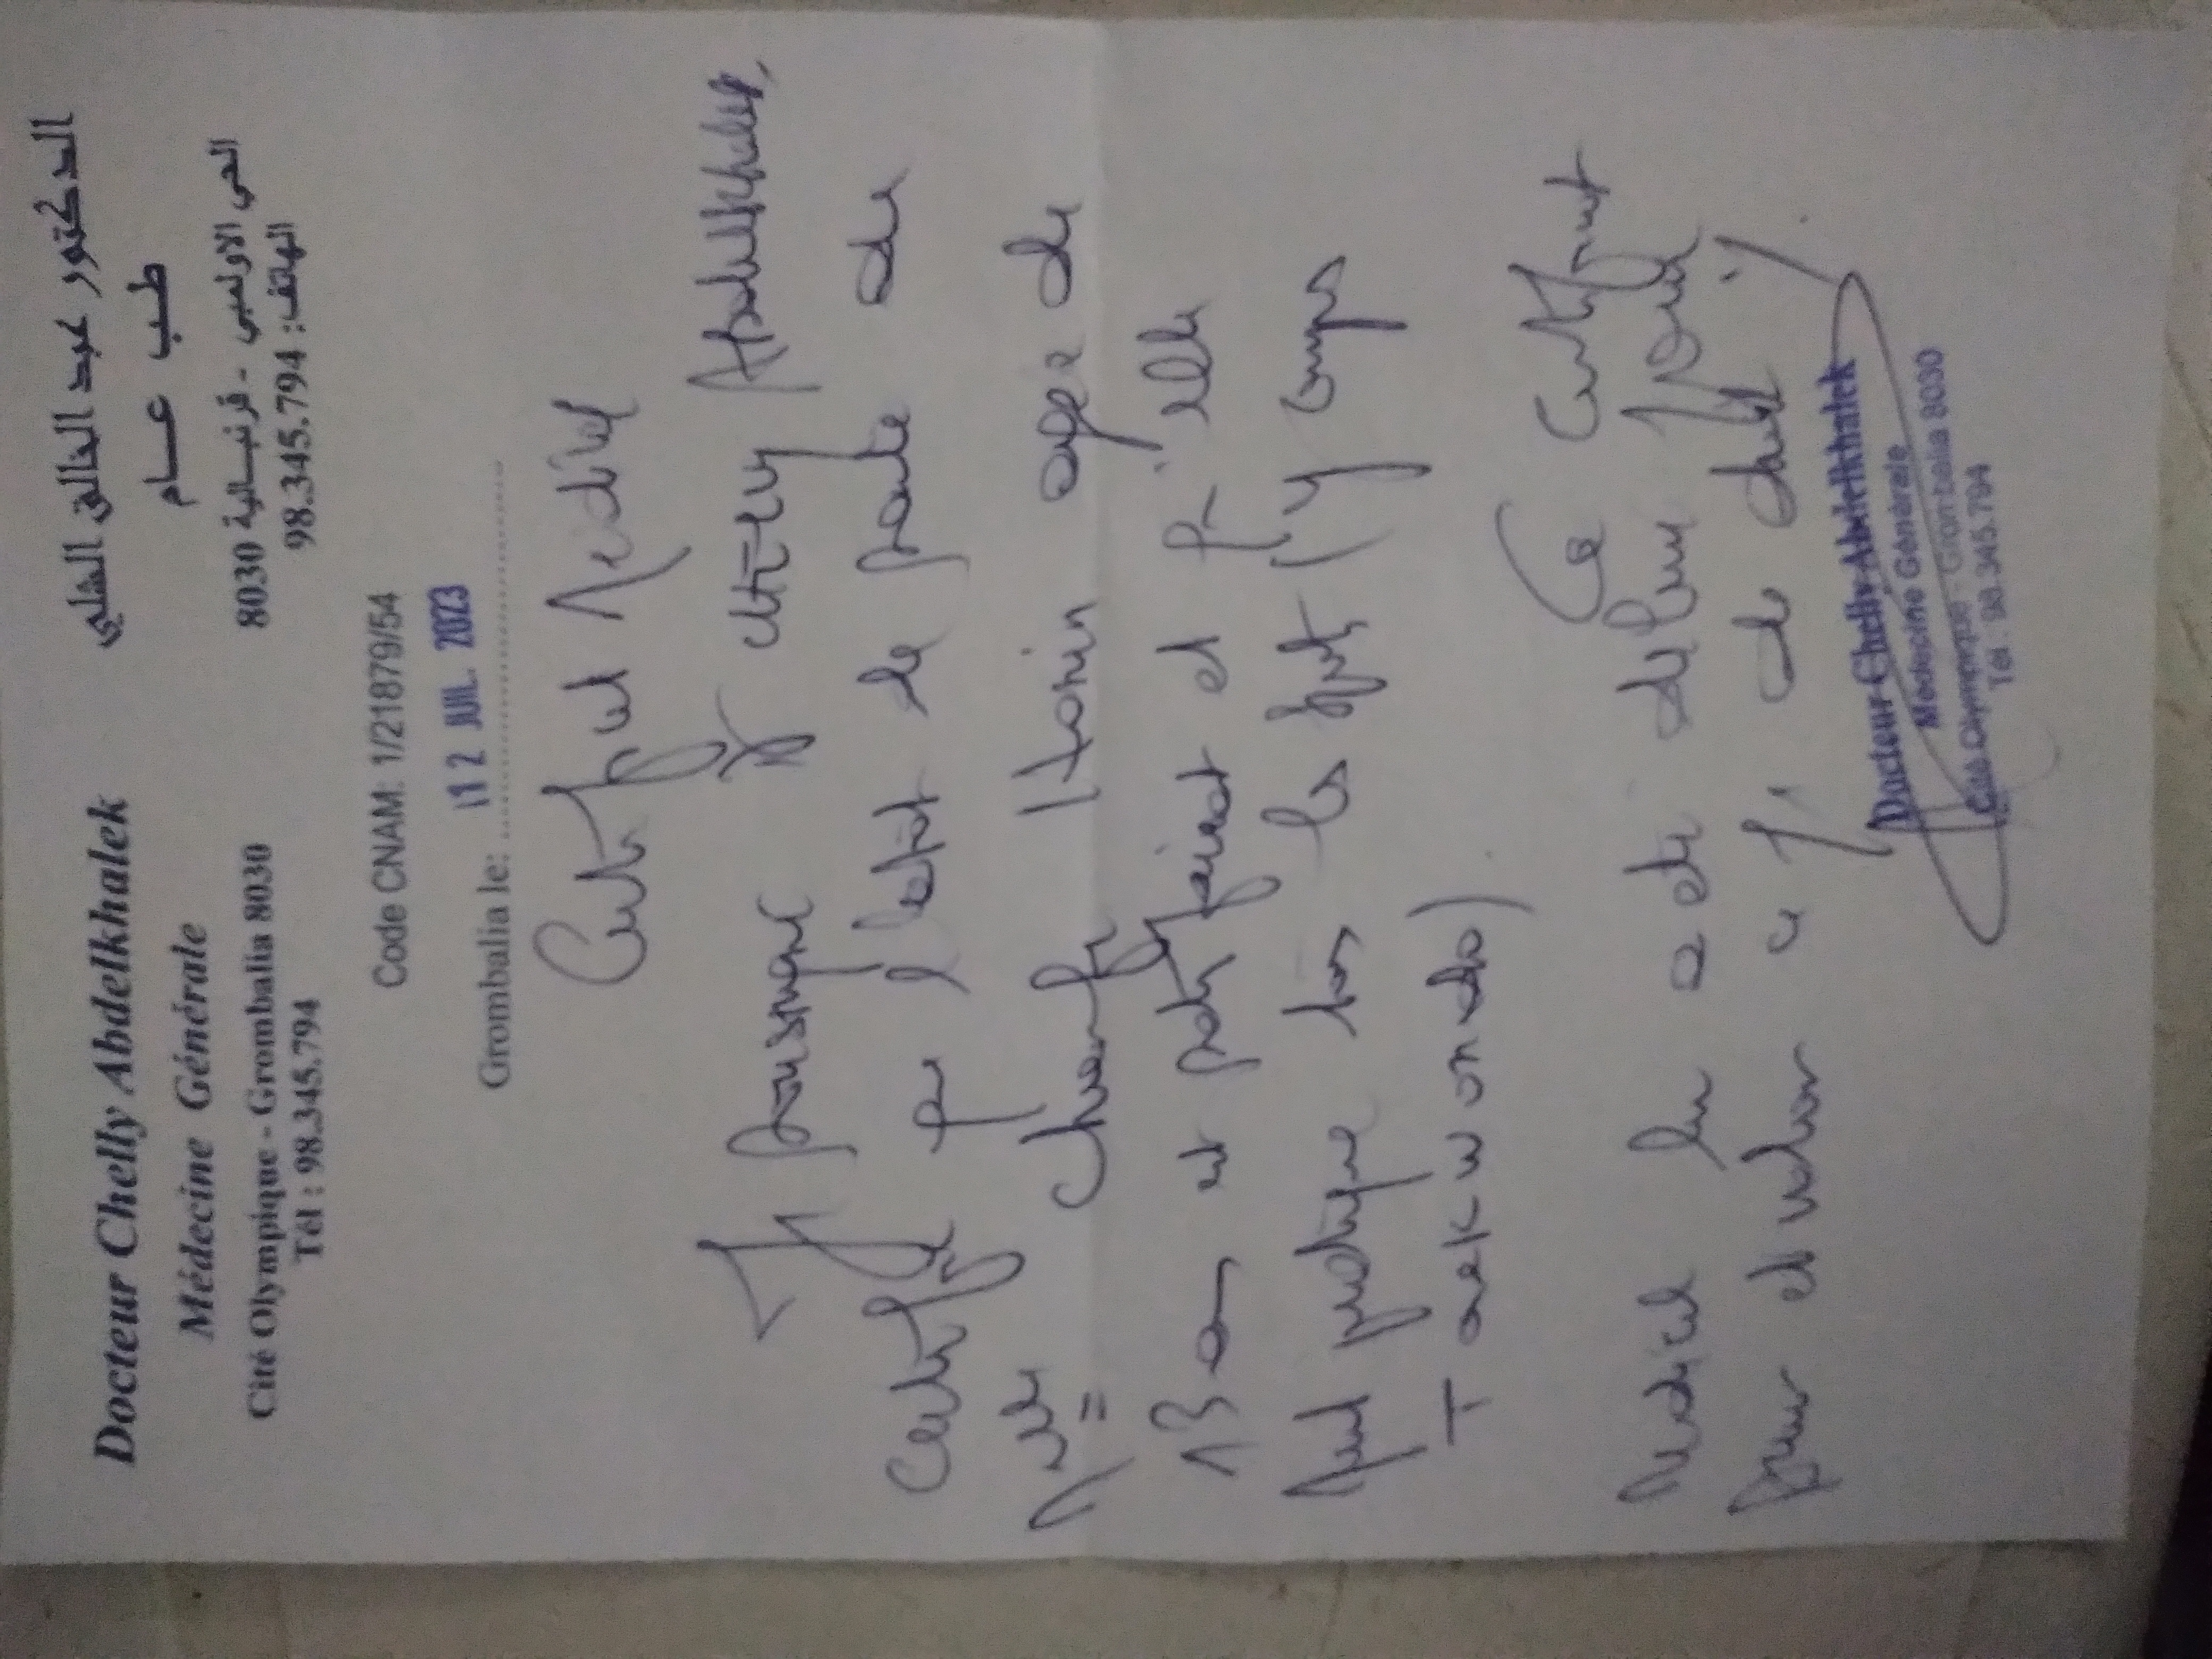 Docteur Chelly Abdelkhalek
Médecine Générale
Cité Olympique - Grombalia 8030
Tél : 98.345.794
الدكتور عبد الخالق الشلي
طب عام
الحي الاولمبي - قرنبالية 8030
الهاتف: 98.345.794
Code CNAM: 1/21879/54
Grombalia le: 12 JUIL. 2023
Certificat Médical
Je soussigné Dr Chelly Abdelkhalek,
Certifie que l'état de santé de
Melle age de
13 ans est satisfaisant et qu'elle
peut pratiquer tous les sports (y compris
Taekwondo).
Ce Certificat
Médical lui a été délivré
pour et valoir ce de droit
Docteur Chelly Abdelkhalek
Médecine Générale
Cité Olympique - Grombalia 8030
Tél : 98.345.794